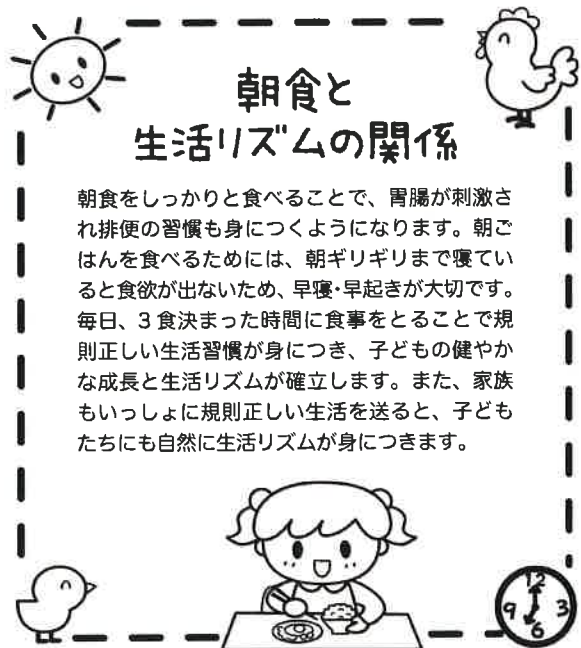 朝食と
生活リズムの関係
朝食をしっかりと食べることで、胃腸が刺激さ
れ排便の習慣も身につくようになります。朝ご
はんを食べるためには、朝ギリギリまで寝てい
ると食欲が出ないため、早寝・早起きが大切です。
毎日、3食決まった時間に食事をとることで規
則正しい生活習慣が身につき、子どもの健やか
な成長と生活リズムが確立します。また、家族
もいっしょに規則正しい生活を送ると、子ども
たちにも自然に生活リズムが身につきます。
12
9 3
6